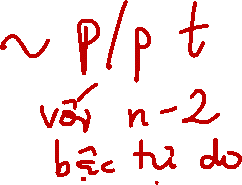 ~ p/p t
với n-2
bậc tự do